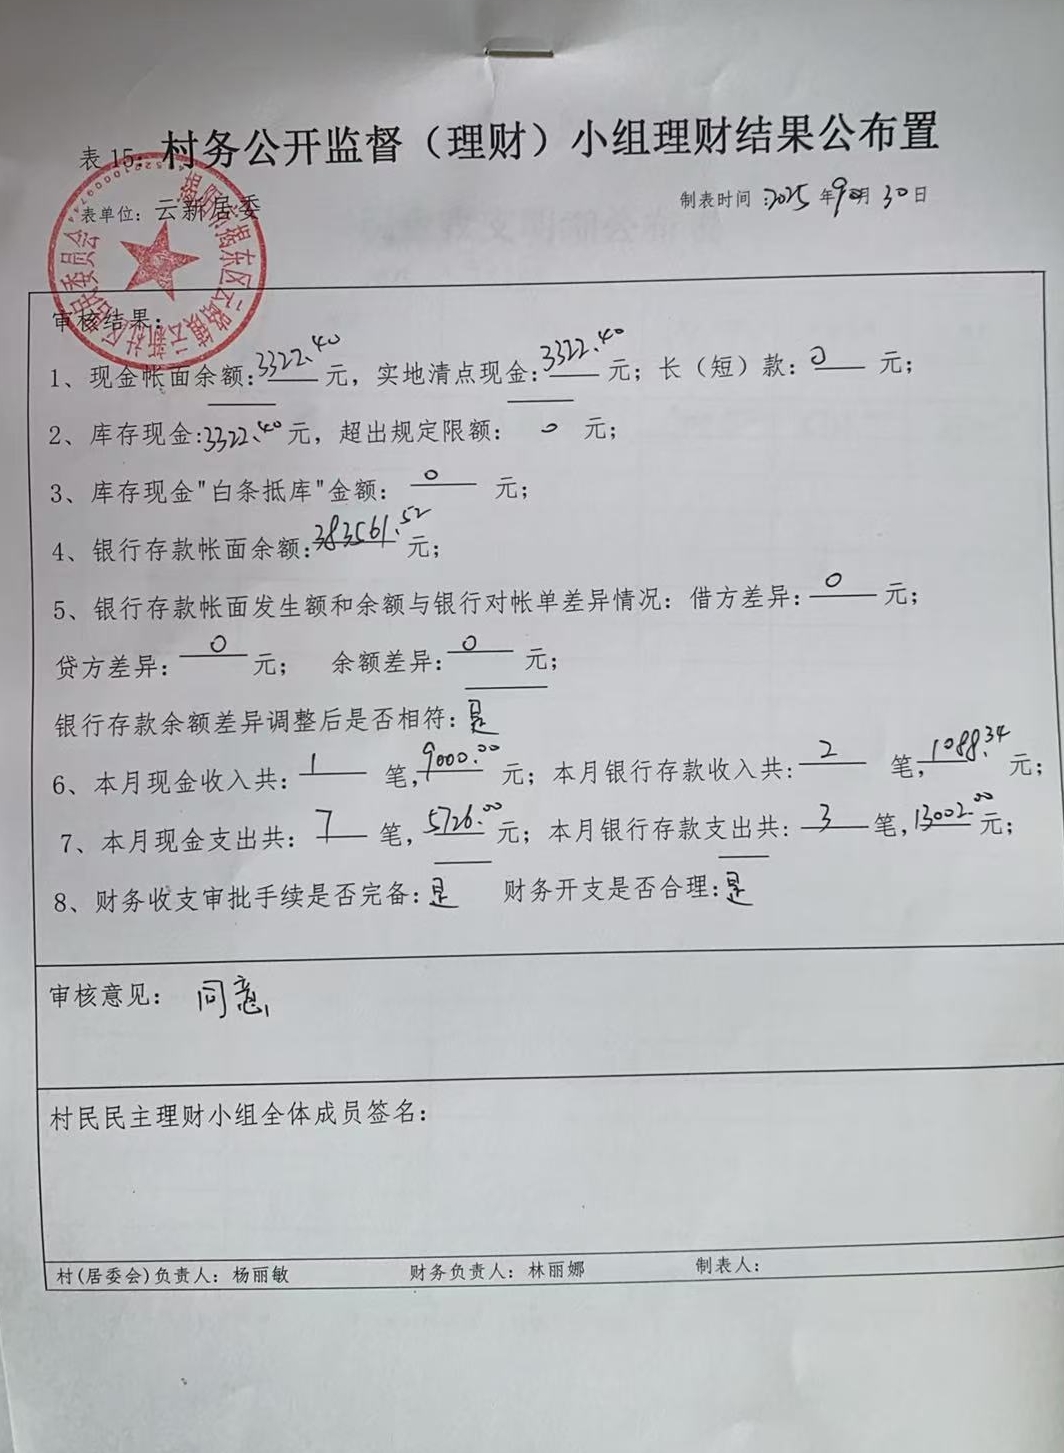 表 15: 村务公开监督（理财）小组理财结果公布置
表单位: 云新居委 制表时间:2025 年 9 月 30 日
审核结果:
1、现金帐面余额:3322.40元，实地清点现金:3322.40元；长（短）款:0元；
2、库存现金:3322.40元，超出规定限额: 0 元；
3、库存现金"白条抵库"金额: 0 元；
4、银行存款帐面余额:383561.52元；
5、银行存款帐面发生额和余额与银行对帐单差异情况: 借方差异: 0 元；
贷方差异: 0 元； 余额差异: 0 元；
银行存款余额差异调整后是否相符: 是
6、本月现金收入共: 1 笔,9000.00元；本月银行存款收入共: 2 笔,1088.34元；
7、本月现金支出共: 7 笔,5726.00元；本月银行存款支出共: 3 笔,13002.00元；
8、财务收支审批手续是否完备: 是 财务开支是否合理: 是
审核意见: 同意
村民民主理财小组全体成员签名:
村(居委会)负责人: 杨丽敏 财务负责人: 林丽娜 制表人: